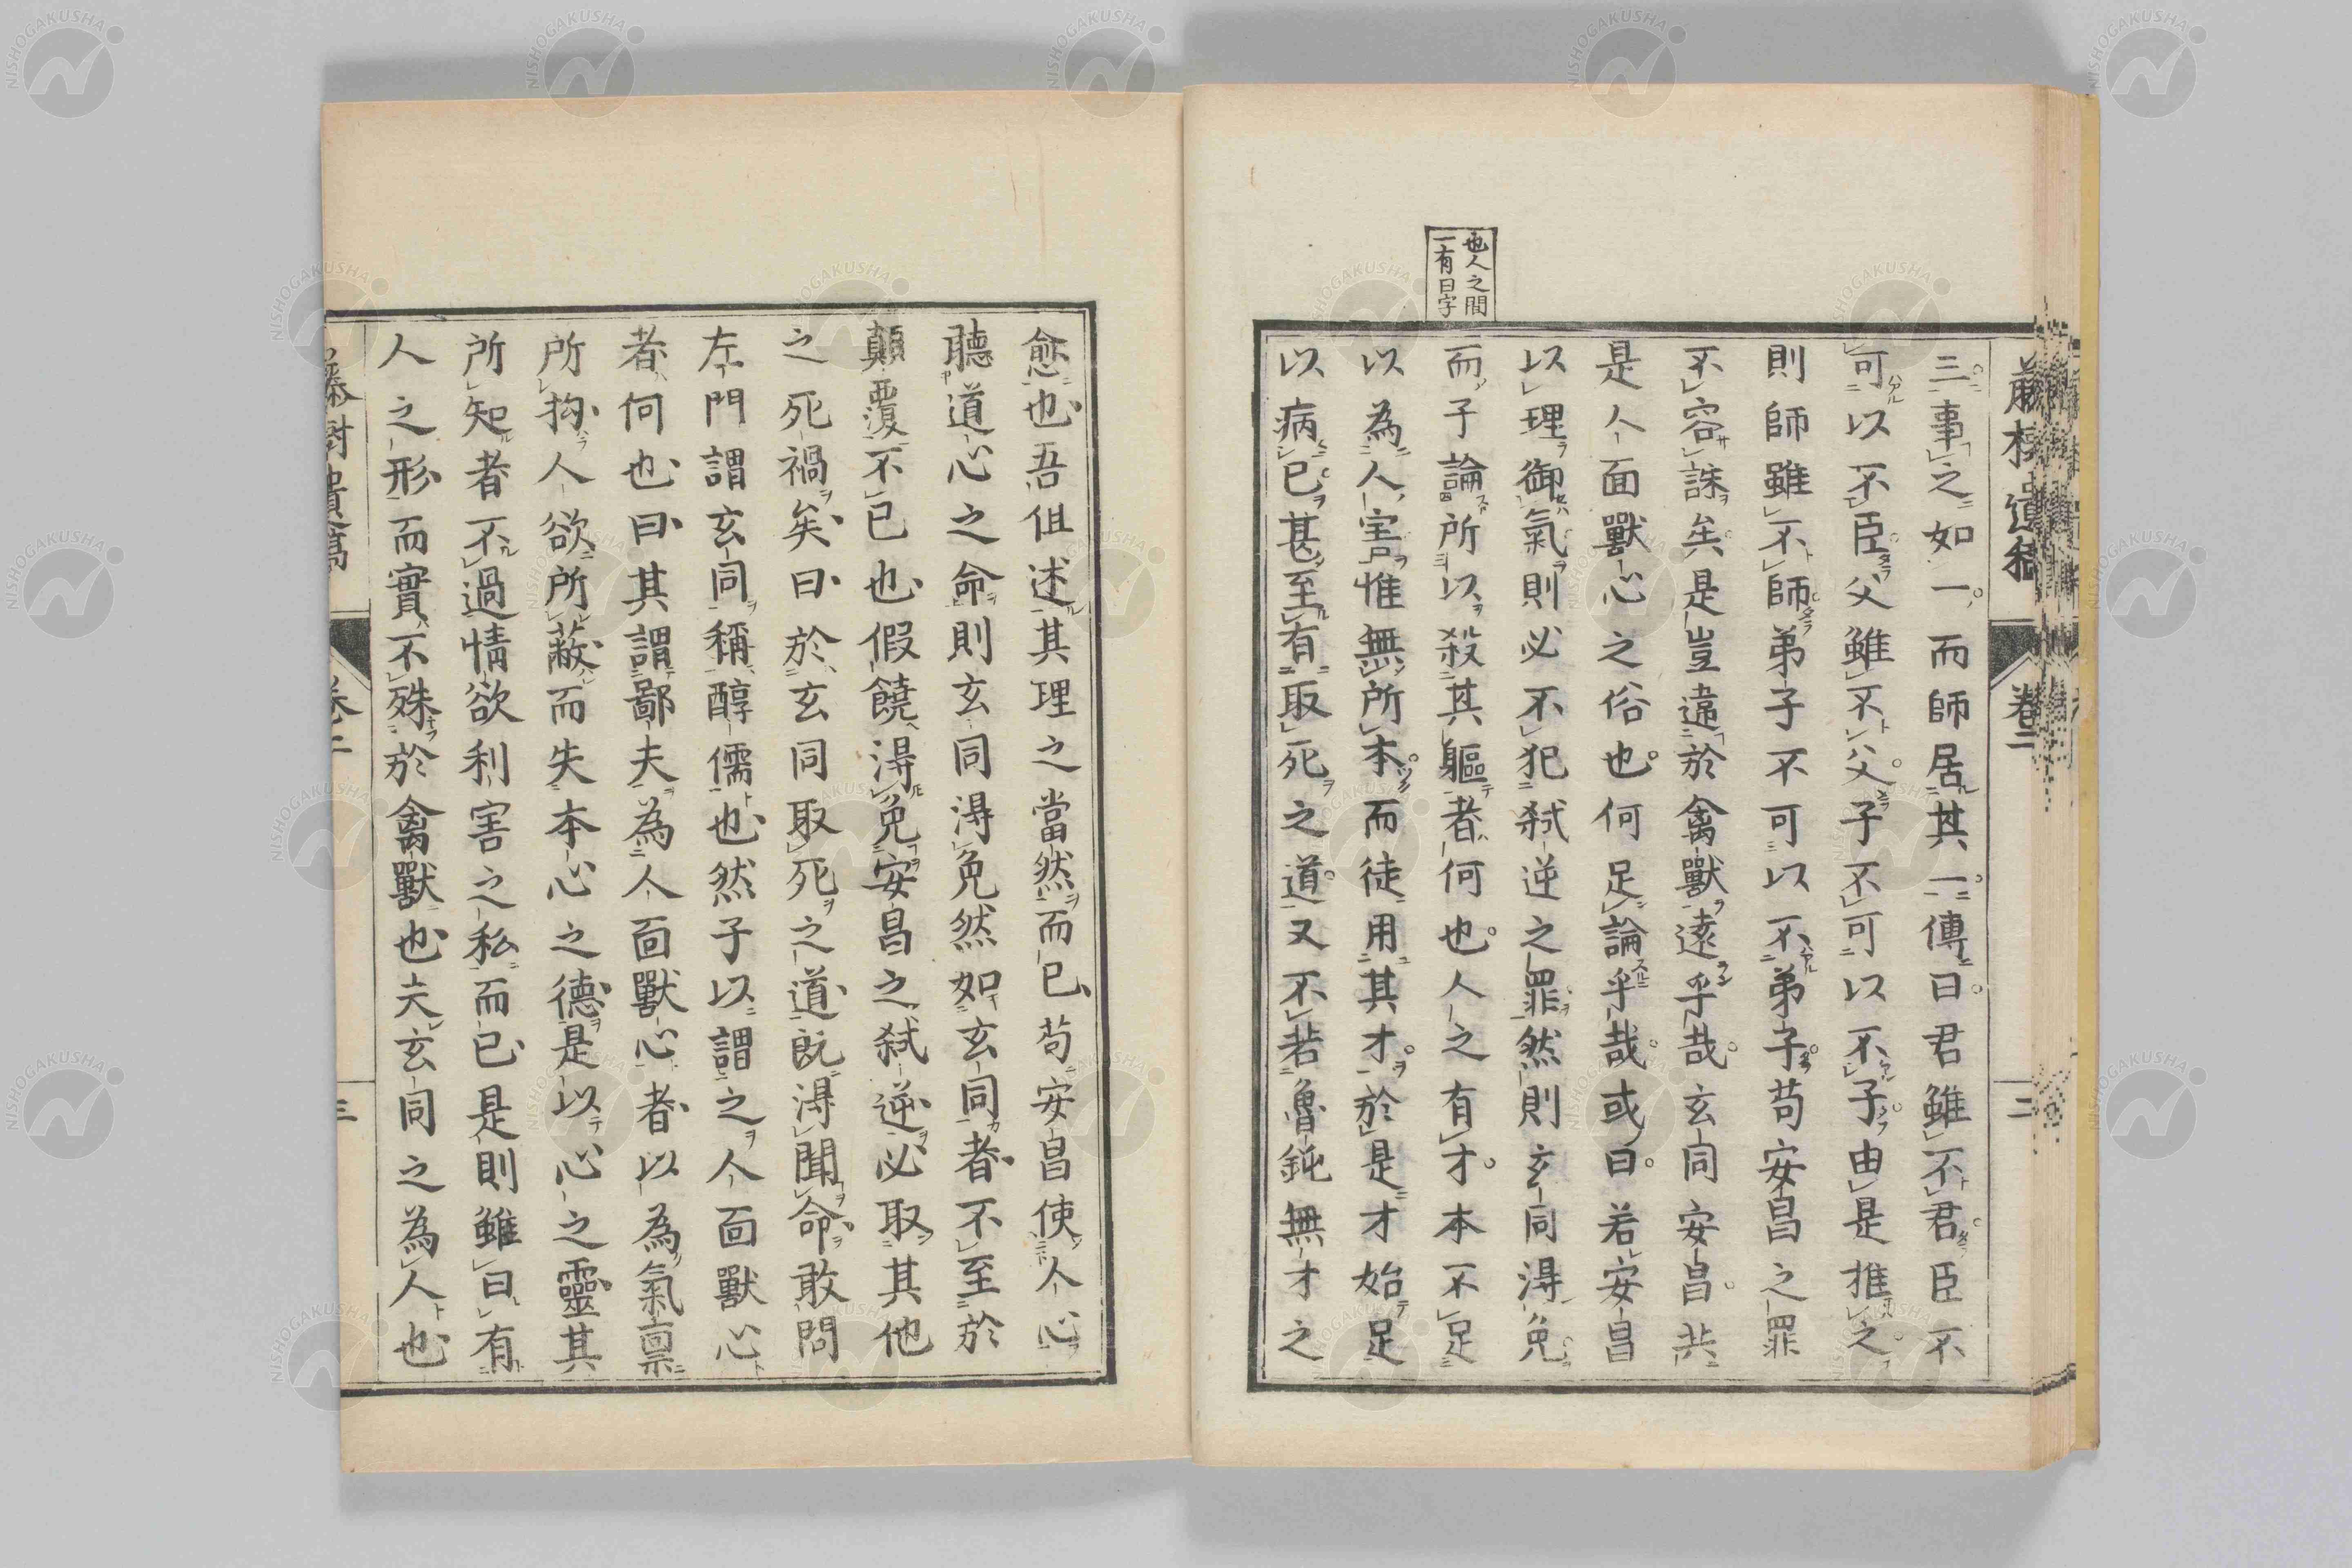 三事之如一而師居其一傳曰君雖不君臣不
可以不臣父雖不父子不可以不子由是推之
則師雖不師弟子不可以不弟子苟安昌之罪
不容誅矣是豈違於禽獸遠乎哉玄同安昌共
是人面獸心之俗也何足論乎哉或曰若安昌
以理御氣則必不犯弑逆之罪然則玄同得免
也人之間
一有曰字
而子論所以殺其軀者何也人之有才本不足
以為人害惟無所本而徒用其才於是才始足
以病已甚至有取死之道又不若魯鈍無才之
卷二
二
愈也吾伹述其理之當然而已苟安昌使人心
聽道心之命則玄同得免然如玄同者不至於
顛覆不已也假饒得免安昌之弑逆必取其他
之死禍矣曰於玄同取死之道既得聞命敢問
左門謂玄同稱醇儒也然子以謂之人面獸心
者何也曰其謂鄙夫為人面獸心者以為氣禀
所拘人欲所蔽而失本心之德是以心之靈其
所知者不過情欲利害之私而已是則雖曰有
人之形而實不殊於禽獸也夫玄同之為人也
卷二
三
NISHOGAKUSHA